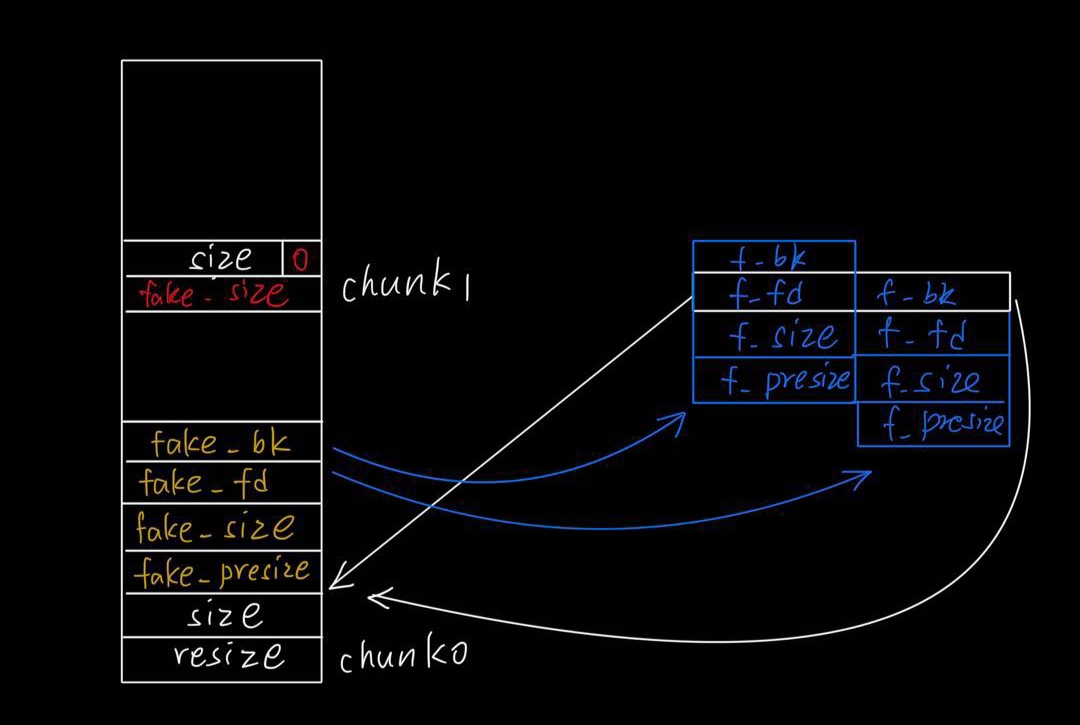 size 0
fake_size
chunk1
fake_bk
fake_fd
fake_size
fake_presize
size
resize
chunk0
f_bk
f_fd
f_size
f_presize
f_bk
f_fd
f_size
f_presize